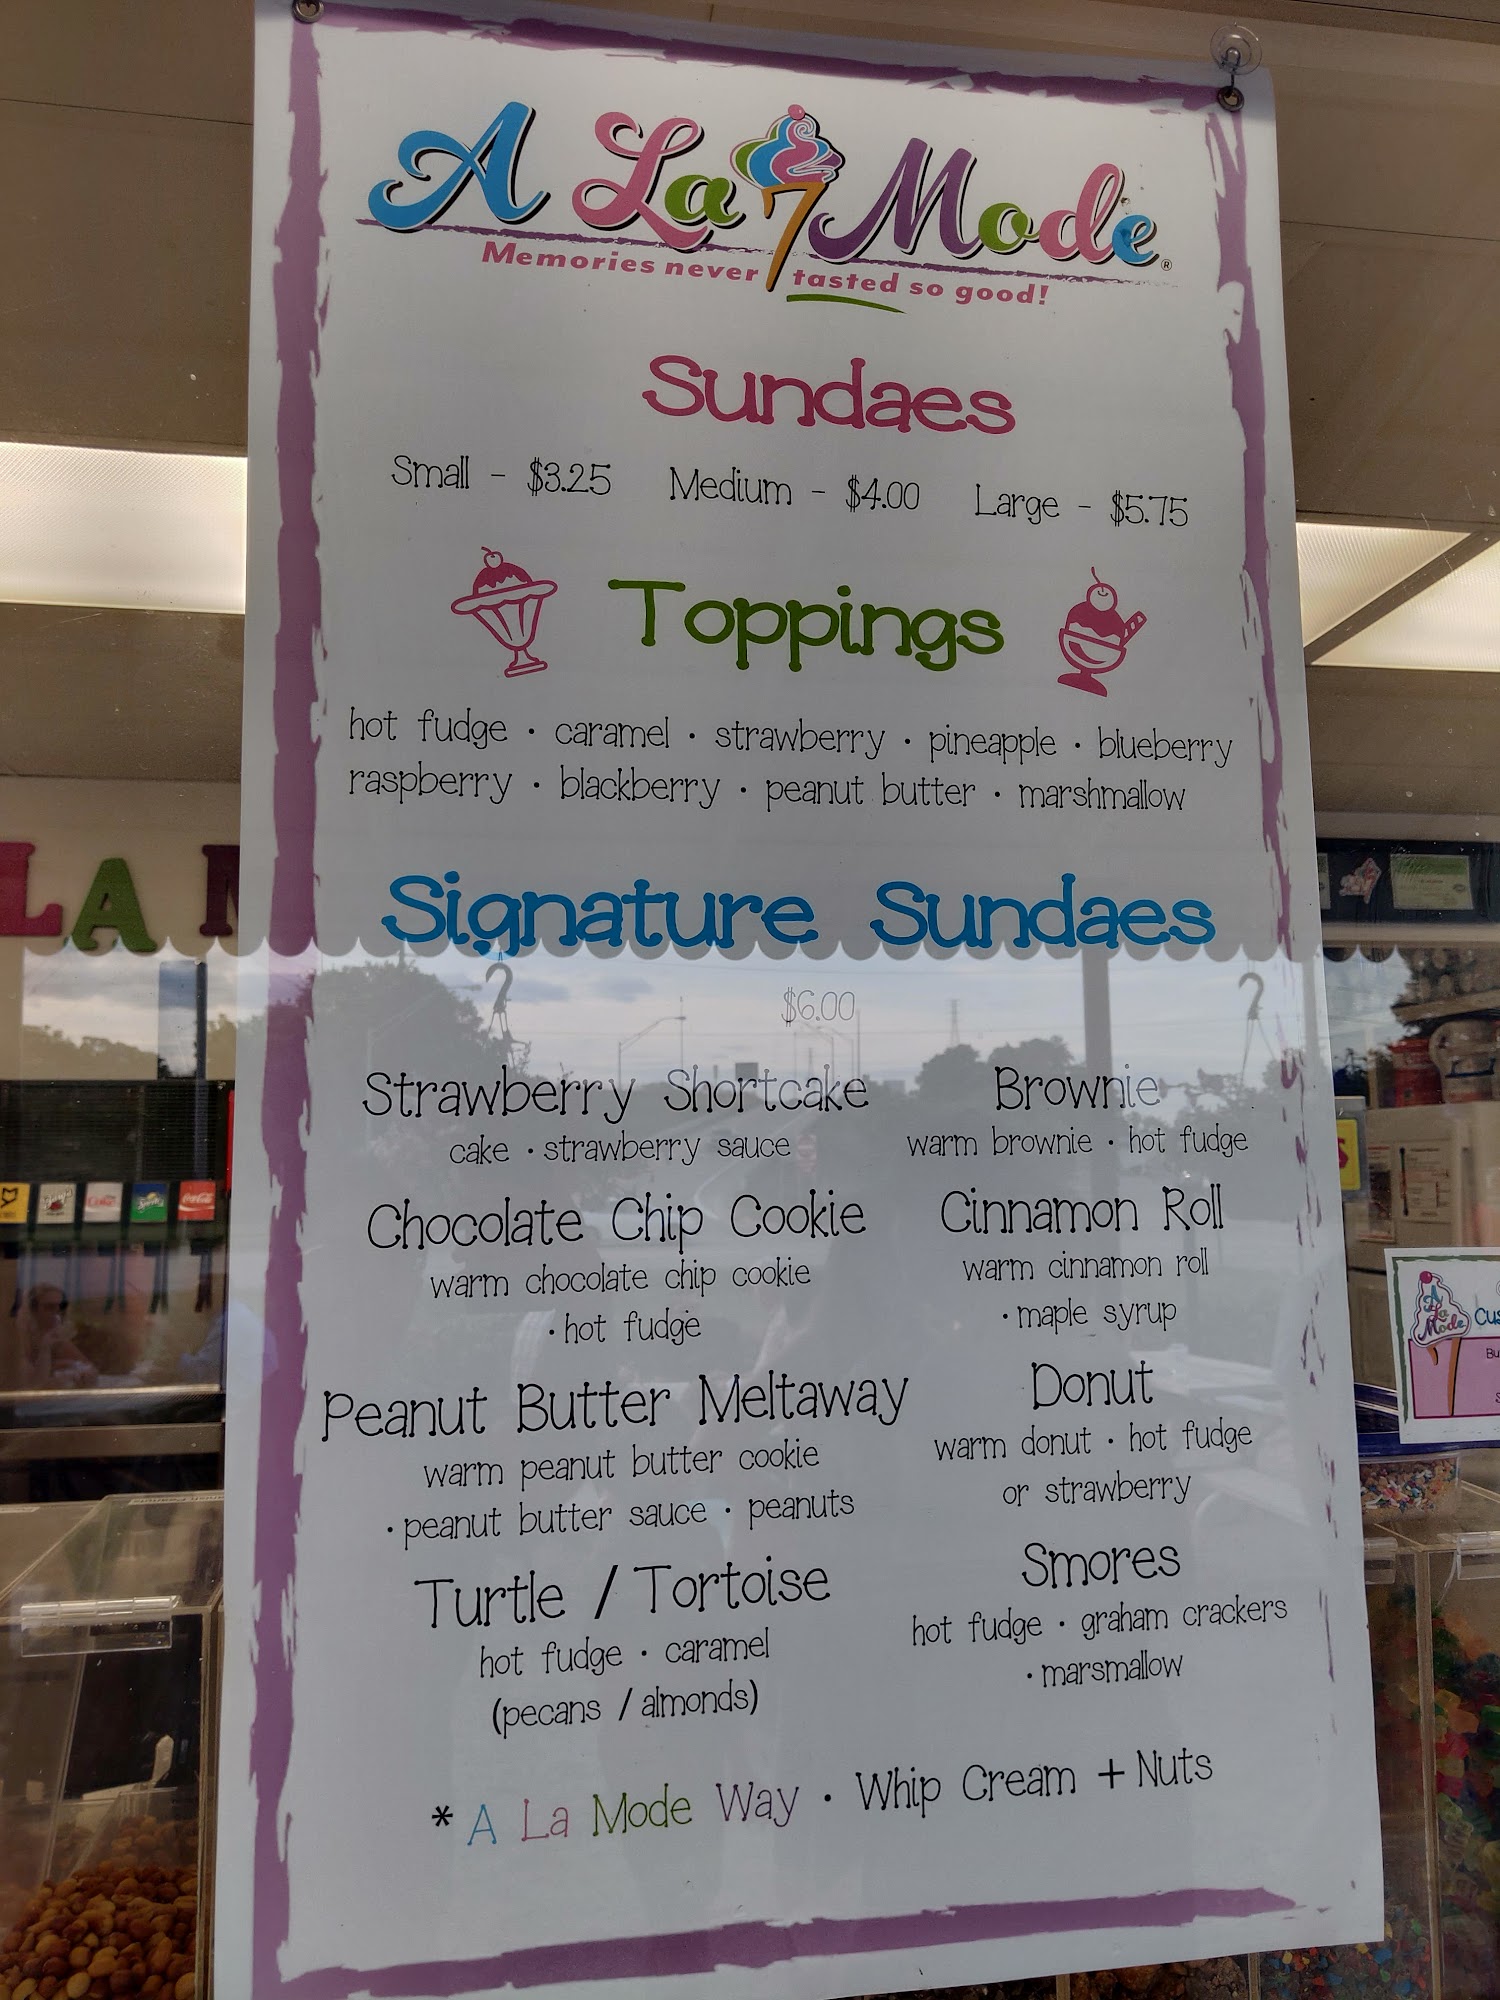 A La Mode®
Memories never tasted so good!
Sundaes
Small - $3.25 Medium - $4.00 Large - $5.75
Toppings
hot fudge • caramel • strawberry • pineapple • blueberry
raspberry • blackberry • peanut butter • marshmallow
Signature Sundaes
$6.00
Strawberry Shortcake
cake • strawberry sauce
Chocolate Chip Cookie
warm chocolate chip cookie
• hot fudge
Peanut Butter Meltaway
warm peanut butter cookie
• peanut butter sauce • peanuts
Turtle / Tortoise
hot fudge • caramel
(pecans / almonds)
Brownie
warm brownie • hot fudge
Cinnamon Roll
warm cinnamon roll
• maple syrup
Donut
warm donut • hot fudge
or strawberry
Smores
hot fudge • graham crackers
• marsmallow
* A La Mode Way • Whip Cream + Nuts
LA M
Sprite
Coca-Cola
A La Mode
Cus
Bu